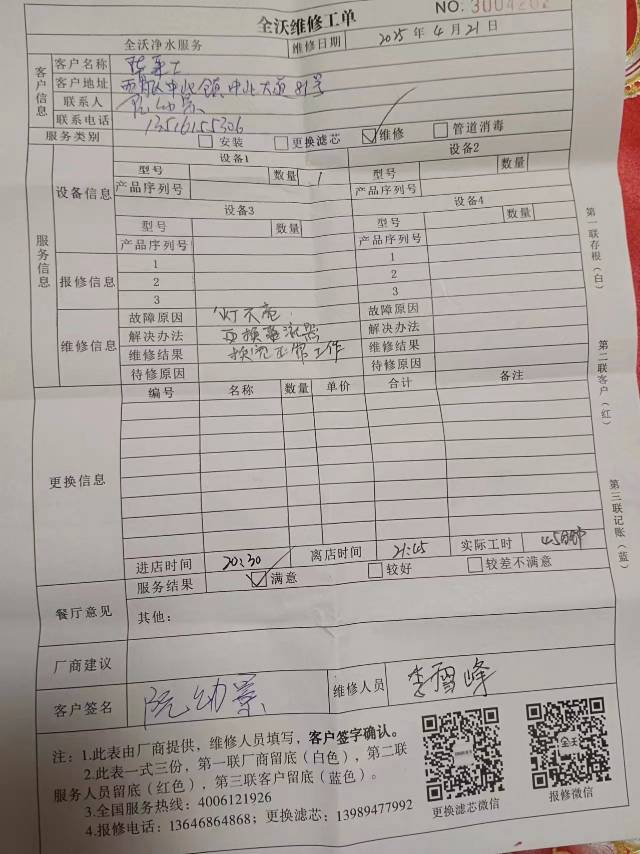 NO. 3004202
全沃维修工单
全沃净水服务 维修日期 2025年4月21日
客户信息
客户名称
客户地址 镇中北大道81号
联系人 阮幼景
联系电话 13516155306
服务类别 安装 更换滤芯 ✓维修 管道消毒
服务信息
设备信息
设备1 设备2
型号 数量 1 型号 数量
产品序列号 产品序列号
设备3 设备4
型号 数量 型号 数量
产品序列号 产品序列号
报修信息
1 1
2 2
3 3
维修信息
故障原因 灯不亮 故障原因
解决办法 更换 解决办法
维修结果 换完正常工作 维修结果
待修原因 待修原因
更换信息
编号 名称 数量 单价 合计 备注
进店时间 20:30 离店时间 21:15 实际工时 45分钟
服务结果 ✓满意 较好 较差不满意
餐厅意见 其他：
厂商建议
客户签名 阮幼景 维修人员 李雪峰
注：1.此表由厂商提供，维修人员填写，客户签字确认。
2.此表一式三份，第一联厂商留底（白色），第二联
服务人员留底（红色），第三联客户留底（蓝色）。
3.全国服务热线：4006121926
4.报修电话：13646864868；更换滤芯：13989477992
更换滤芯微信
全沃
报修微信
第一联存根（白）
第二联客户（红）
第三联记账（蓝）